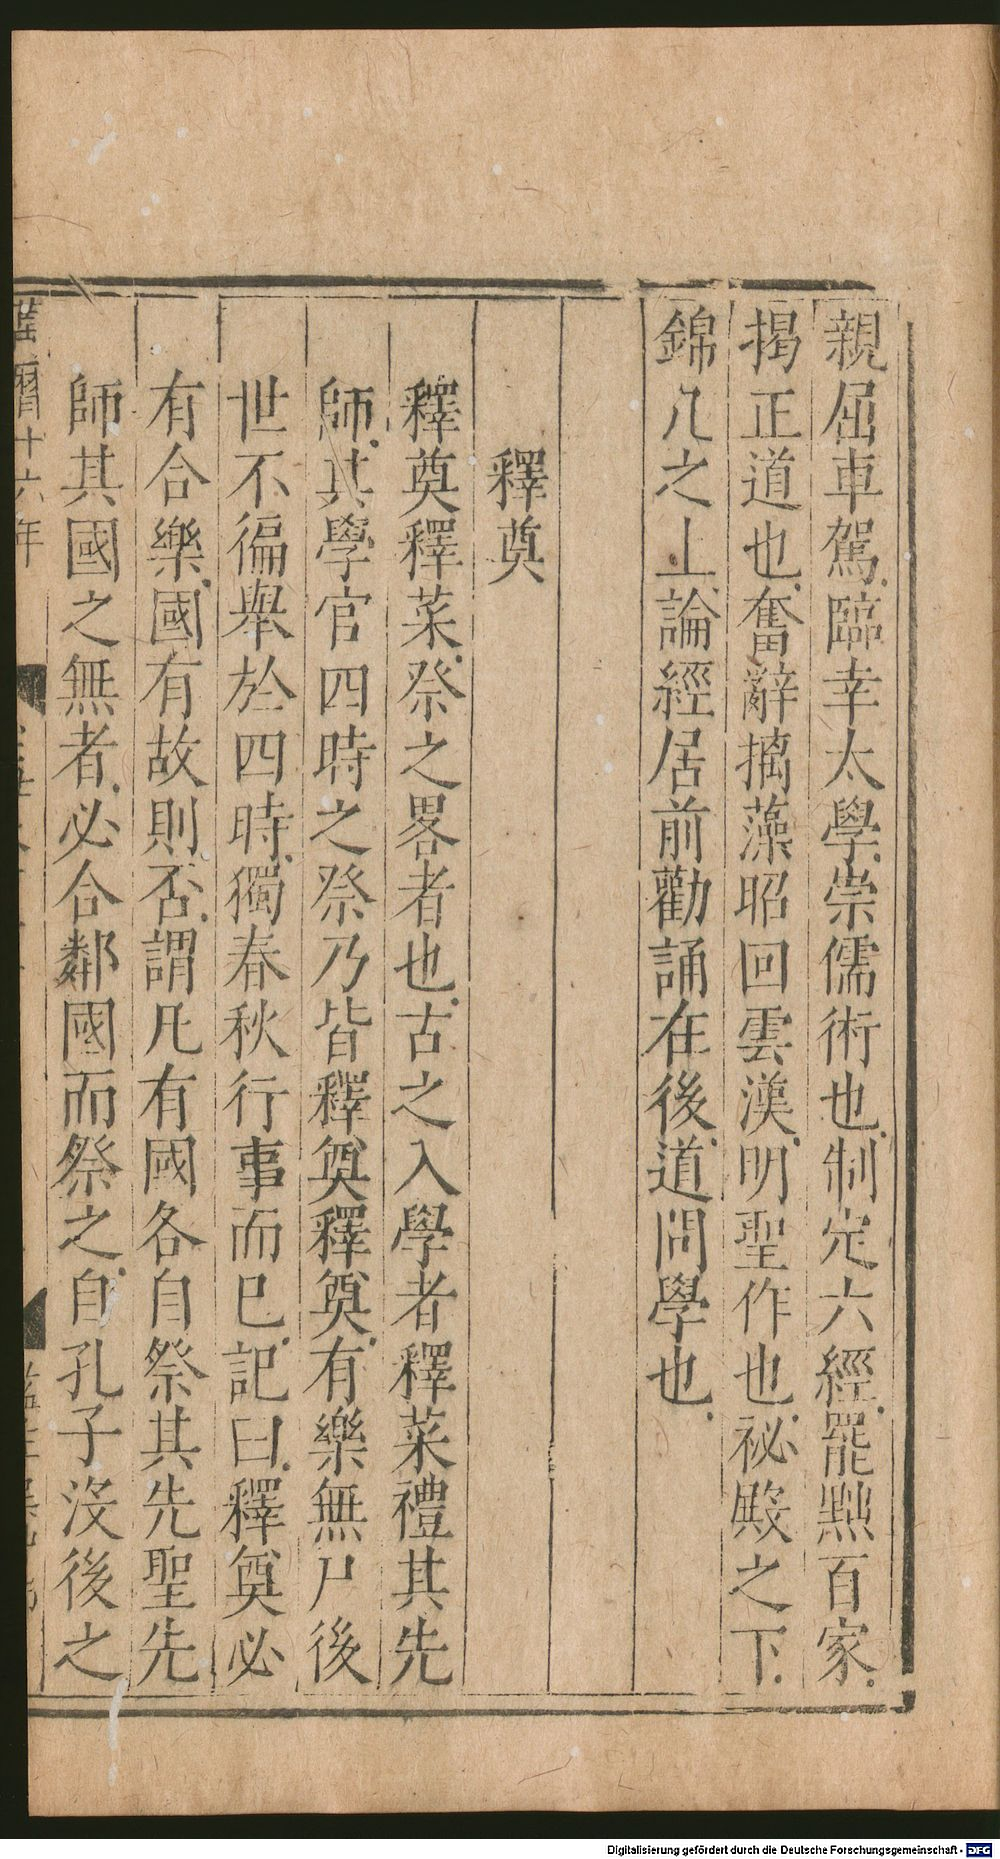 親屈車駕臨幸太學崇儒術也制定六經罷黜百家
揭正道也奮辭摛藻昭回雲漢明聖作也祕殿之下
錦几之上論經居前勸誦在後道問學也
釋奠
釋奠釋菜祭之畧者也古之入學者釋菜禮其先
師其學官四時之祭乃皆釋奠釋奠有樂無尸後
世不徧舉於四時獨春秋行事而已記曰釋奠必
有合樂國有故則否謂凡有國各自祭其先聖先
師其國之無者必合鄰國而祭之自孔子沒後之
萬曆十六年
Digitalisierung gefördert durch die Deutsche Forschungsgemeinschaft - DFG